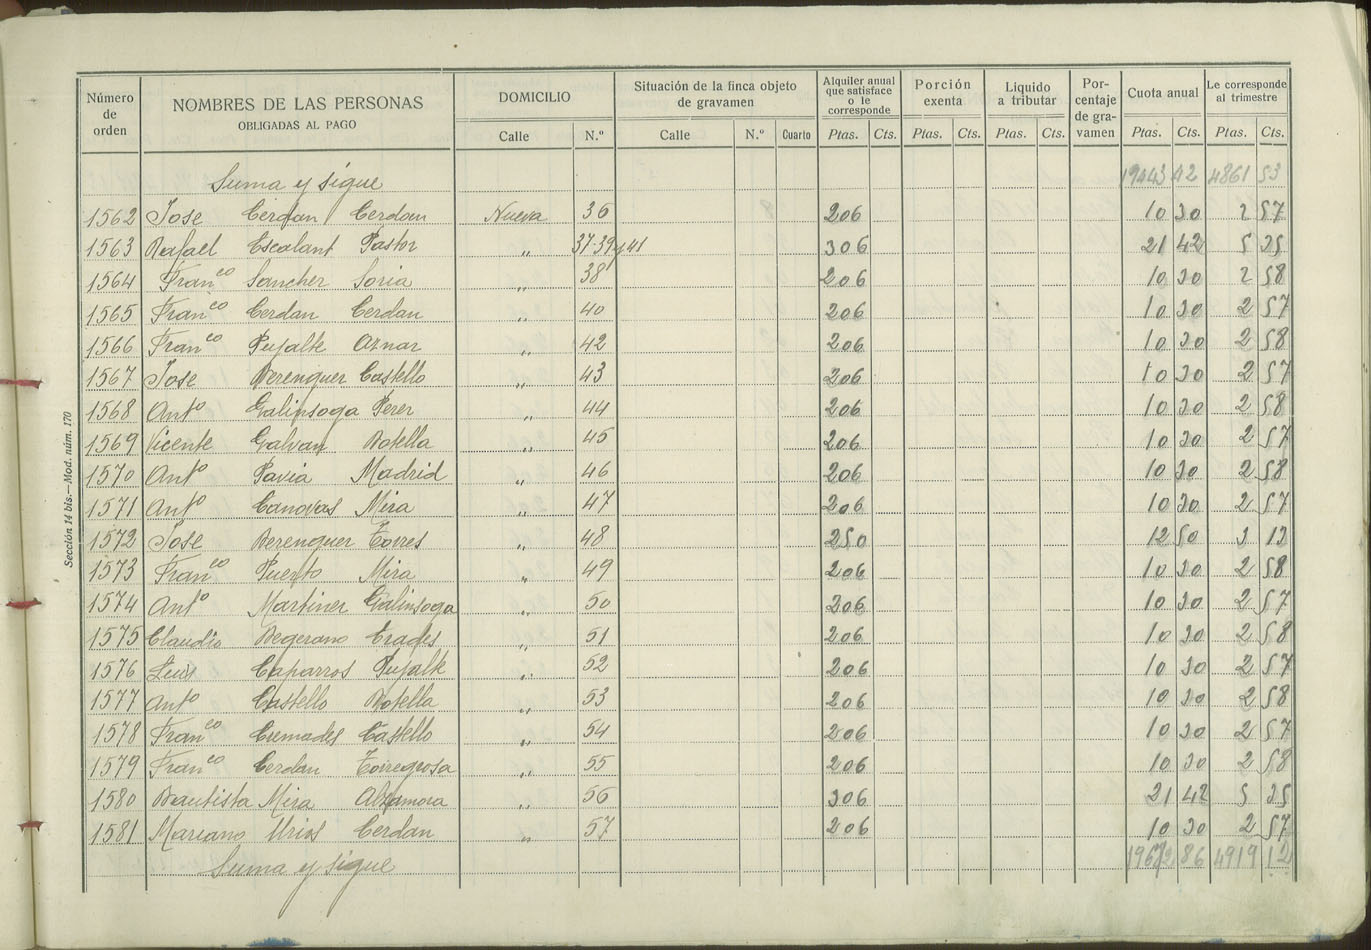 Número de orden
NOMBRES DE LAS PERSONAS OBLIGADAS AL PAGO
DOMICILIO
Calle N.º
Situación de la finca objeto de gravamen
Calle N.º Cuarto
Alquiler anual que satisface o le corresponde
Ptas. Cts.
Porción exenta
Ptas. Cts.
Liquido a tributar
Ptas. Cts.
Porcentaje de gravamen
Cuota anual
Ptas. Cts.
Le corresponde al trimestre
Ptas. Cts.
Suma y sigue 19443 42 4861 53
1562 Jose Cerdan Cerdan Nueva 36 206 10 30 2 57
1563 Rafael Escalant Pastor " 37-39 y 41 306 21 42 5 35
1564 Franco Sancher Soria " 38 206 10 30 2 58
1565 Franco Cerdan Cerdan " 40 206 10 30 2 57
1566 Franco Pujalte Aznar " 42 206 10 30 2 58
1567 Jose Berenguer Castello " 43 206 10 30 2 57
1568 Anto Galinsoga Perer " 44 206 10 30 2 58
1569 Vicente Galvan Botella " 45 206 10 30 2 57
1570 Anto Pavia Madrid " 46 206 10 30 2 58
1571 Anto Canovas Mira " 47 206 10 30 2 57
1572 Jose Berenguer Torres " 48 250 12 50 3 13
1573 Franco Puerto Mira " 49 206 10 30 2 58
1574 Anto Martiner Galinsoga " 50 206 10 30 2 57
1575 Claudio Begerano Erades " 51 206 10 30 2 58
1576 Luis Caparros Pujalte " 52 206 10 30 2 57
1577 Anto Castello Botella " 53 206 10 30 2 58
1578 Franco Cremades Castello " 54 206 10 30 2 57
1579 Franco Cerdan Torregrosa " 55 206 10 30 2 58
1580 Bautista Mira Alzamora " 56 306 21 42 5 35
1581 Mariano Urios Cerdan " 57 206 10 30 2 57
Suma y sigue 19672 86 4919 12
Sección 14 bis.—Mod. núm. 170